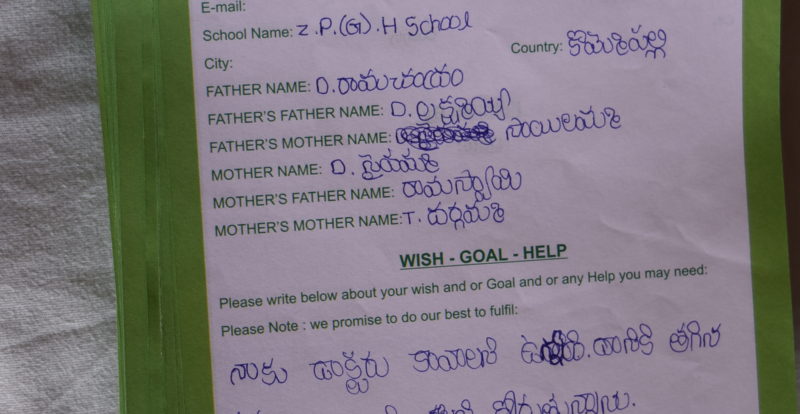 E-mail:
School Name: Z.P.(G).H School
Country: కొమెరపల్లి
City:
FATHER NAME: D. రామచంద్రం
FATHER'S FATHER NAME: D. లక్ష్మయ్య
FATHER'S MOTHER NAME: సాయిలమ్మ
MOTHER NAME: D.
MOTHER'S FATHER NAME: రామస్వామి
MOTHER'S MOTHER NAME: T. దుర్గమ్మ
WISH - GOAL - HELP
Please write below about your wish and or Goal and or any Help you may need:
Please Note : we promise to do our best to fulfil:
నాకు డాక్టరు కావాలని ఉంది. దానికి తగిన